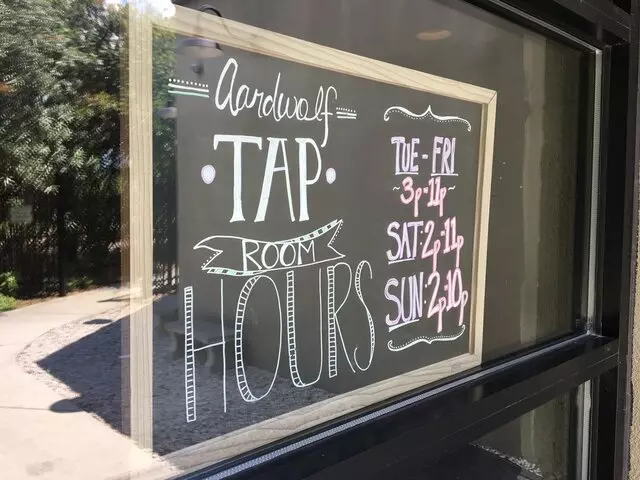 Aardwolf
TAP
ROOM
HOURS
TUE - FRI
~3p-11p~
SAT·2p-11p
SUN·2p-10p